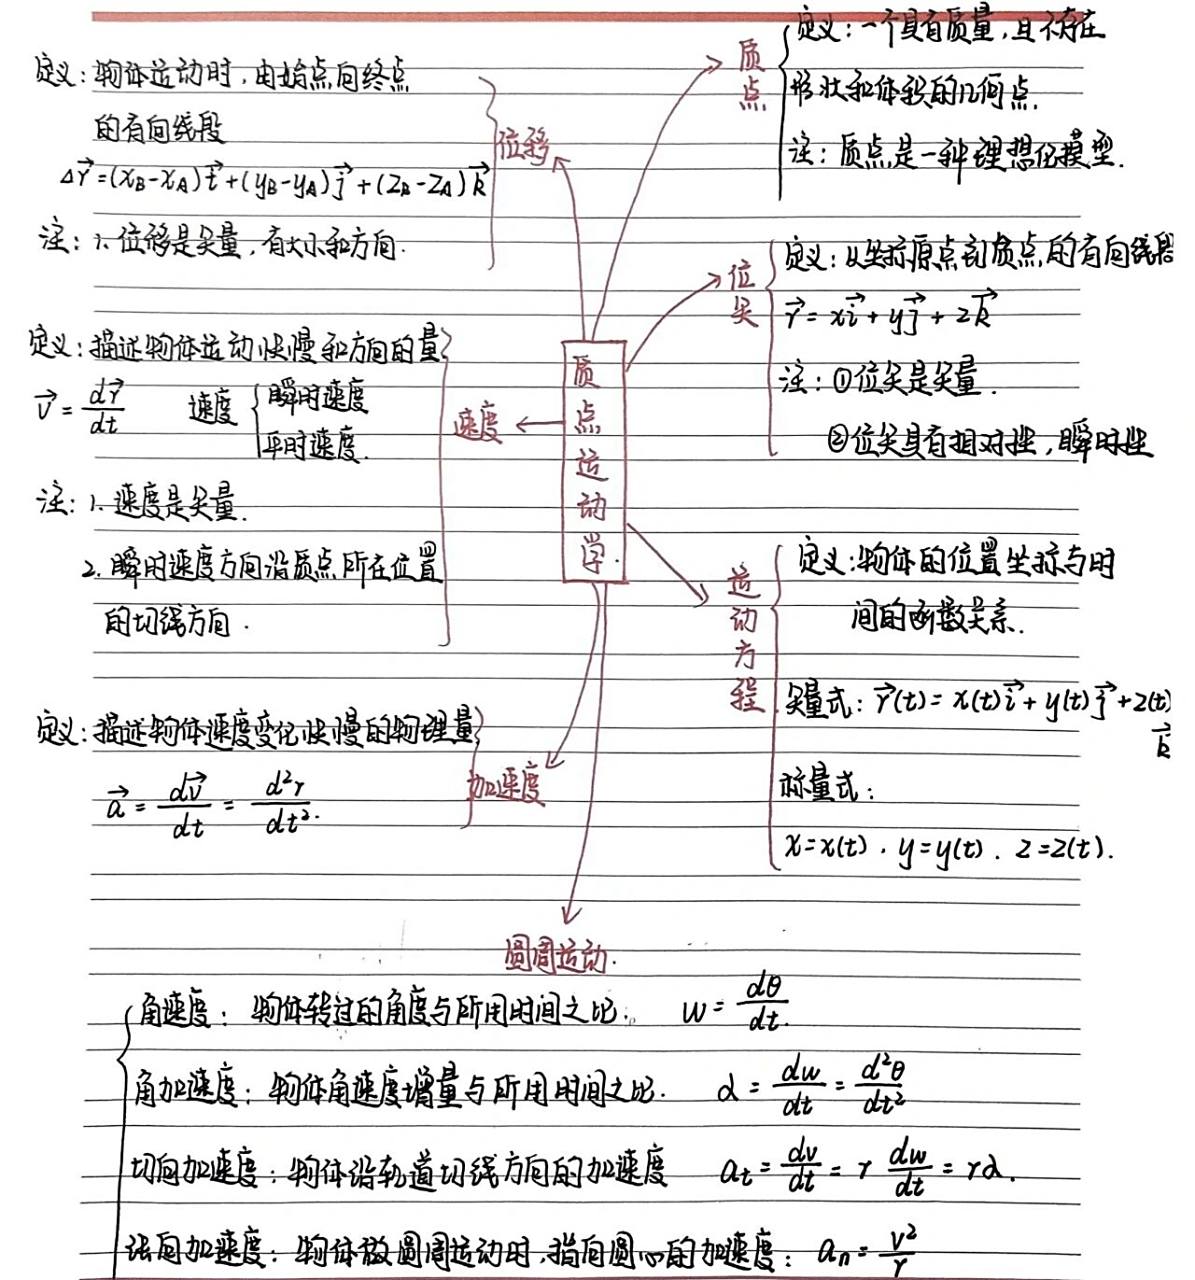 质点运动学.
质点
定义：一个具有质量，且不存在
形状和体积的几何点.
注：质点是一种理想化模型.
位矢
定义：从坐标原点到质点的有向线段
r⃗=xi⃗+yj⃗+zk⃗
注：①位矢是矢量.
②位矢具有相对性，瞬时性
运动方程
定义：物体的位置坐标与时
间的函数关系.
矢量式：r⃗(t)=x(t)i⃗+y(t)j⃗+z(t)
k⃗
标量式：
x=x(t)，y=y(t)．z=z(t).
位移
定义：物体运动时，由始点向终点
的有向线段
Δr⃗=(xB-xA)i⃗+(yB-yA)j⃗+(zB-zA)k⃗
注：1.位移是矢量，有大小和方向.
速度
定义：描述物体运动快慢和方向的量
v⃗=dr⃗/dt 速度 { 瞬时速度
平时速度.
注：1.速度是矢量.
2.瞬时速度方向沿质点所在位置
的切线方向.
加速度
定义：描述物体速度变化快慢的物理量
a⃗=dv⃗/dt=d²r/dt².
圆周运动.
角速度：物体转过的角度与所用时间之比. w=dθ/dt.
角加速度：物体角速度增量与所用时间之比. α=dw/dt=d²θ/dt²
切向加速度：物体沿轨道切线方向的加速度 at=dv/dt=r dw/dt=rα.
法向加速度：物体做圆周运动时，指向圆心的加速度：an=v²/r